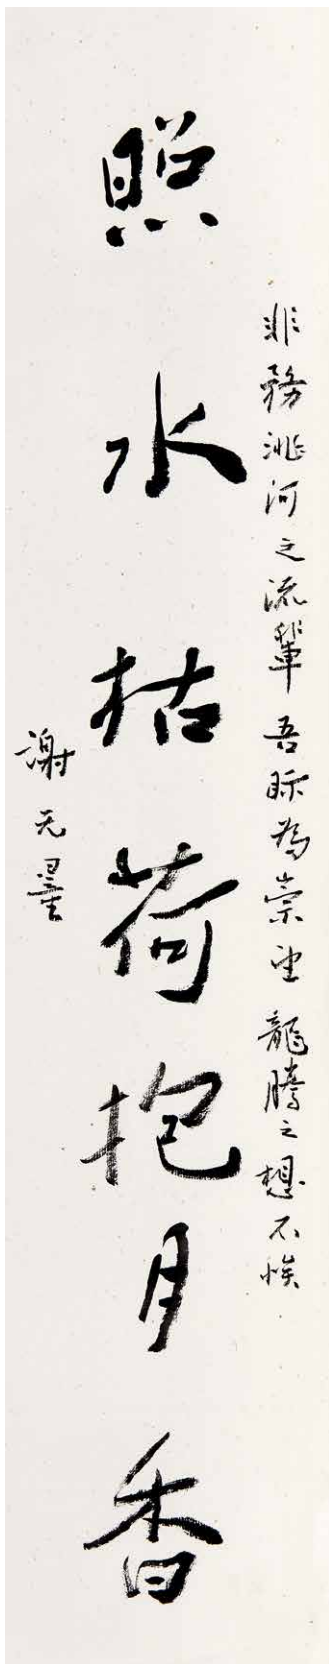 非務洮河之流輩 吾為崇 龍騰之想不
照水枯荷抱月香
謝无量